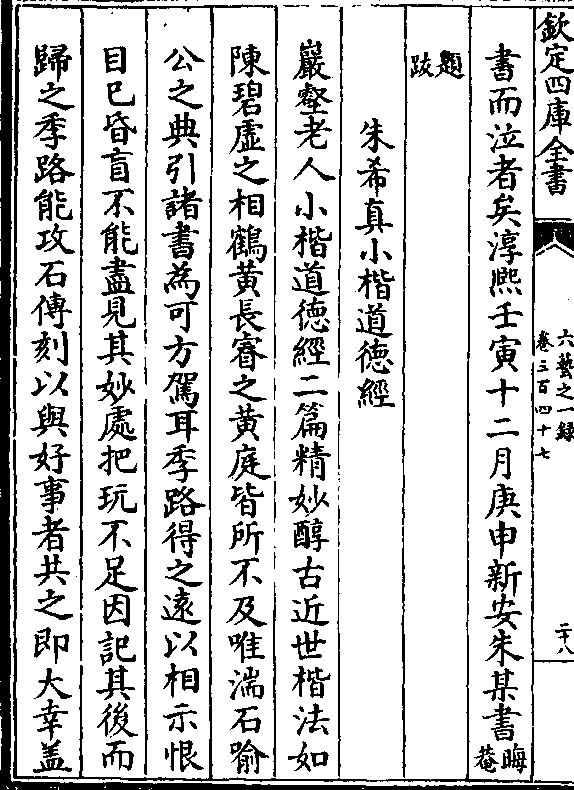 欽定四庫全書
六藝之一録
卷三百四十七
二十八
書而泣者矣淳熙壬寅十二月庚申新安朱某書晦菴
題跋
朱希真小楷道德經
巖壑老人小楷道德經二篇精妙醇古近世楷法如
陳碧虛之相鶴黃長睿之黃庭皆所不及唯湍石喻
公之典引諸書為可方駕耳季路得之遠以相示恨
目已昏盲不能盡見其妙處把玩不足因記其後而
歸之季路能攻石傳刻以與好事者共之即大幸盖